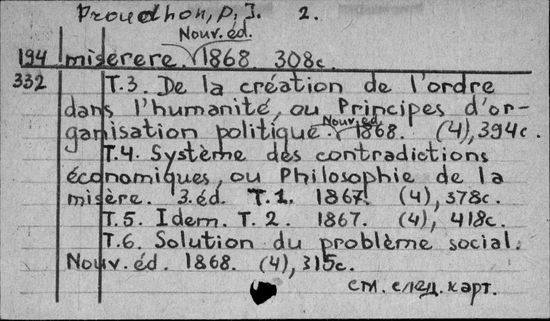 Proudhon, P. J. 2.
Nouv. éd.
194 miserere. 1868. 308c.
332 T.3. De la création de l'ordre
dans l'humanité, ou Principes d'or-
ganisation politique. Nouv. éd. 1868. (4), 394c.
T.4. Système des contradictions
économiques, ou Philosophie de la
misère. 3.éd. T.1. 1867. (4), 378c.
T.5. Idem. T.2. 1867. (4), 418c.
T.6. Solution du problème social.
Nouv. éd. 1868. (4), 315c.
см. след. карт.